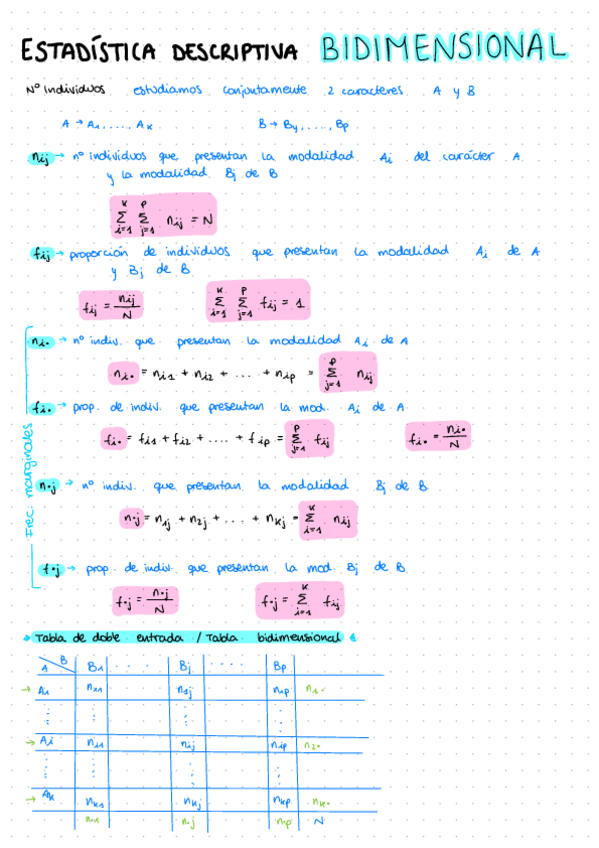 ESTADÍSTICA DESCRIPTIVA BIDIMENSIONAL
Nº Individuos estudiamos conjuntamente 2 caracteres A y B
A → A₁, ...., Aₖ B → B₁, ...., Bₚ
nᵢⱼ → nº individuos que presentan la modalidad Aᵢ del carácter A
y la modalidad Bⱼ de B
∑ᵢ₌₁ᴷ ∑ⱼ₌₁ᴾ nᵢⱼ = N
fᵢⱼ → proporción de individuos que presentan la modalidad Aᵢ de A
y Bⱼ de B
fᵢⱼ = nᵢⱼ/N ∑ᵢ₌₁ᴷ ∑ⱼ₌₁ᴾ fᵢⱼ = 1
Frec. marginales
nᵢ• → nº indiv. que presentan la modalidad Aᵢ de A
nᵢ• = nᵢ₁ + nᵢ₂ + .... + nᵢₚ = ∑ⱼ₌₁ᴾ nᵢⱼ
fᵢ• → prop. de indiv. que presentan la mod. Aᵢ de A
fᵢ• = fᵢ₁ + fᵢ₂ + .... + fᵢₚ = ∑ⱼ₌₁ᴾ fᵢⱼ fᵢ• = nᵢ•/N
n•ⱼ → nº indiv. que presentan la modalidad Bⱼ de B
n•ⱼ = n₁ⱼ + n₂ⱼ + ... + nₖⱼ = ∑ᵢ₌₁ᴷ nᵢⱼ
f•ⱼ → prop. de indiv. que presentan la mod. Bⱼ de B
f•ⱼ = n•ⱼ/N f•ⱼ = ∑ᵢ₌₁ᴷ fᵢⱼ
Tabla de doble entrada / Tabla bidimensional
A B B₁ .... Bⱼ .... Bₚ
→ A₁ n₁₁ n₁ⱼ n₁ₚ n₁•
→ Aᵢ nᵢ₁ nᵢⱼ nᵢₚ n₂•
→ Aₖ nₖ₁ nₖⱼ nₖₚ nₖ•
n•₁ n•ⱼ n•ₚ N